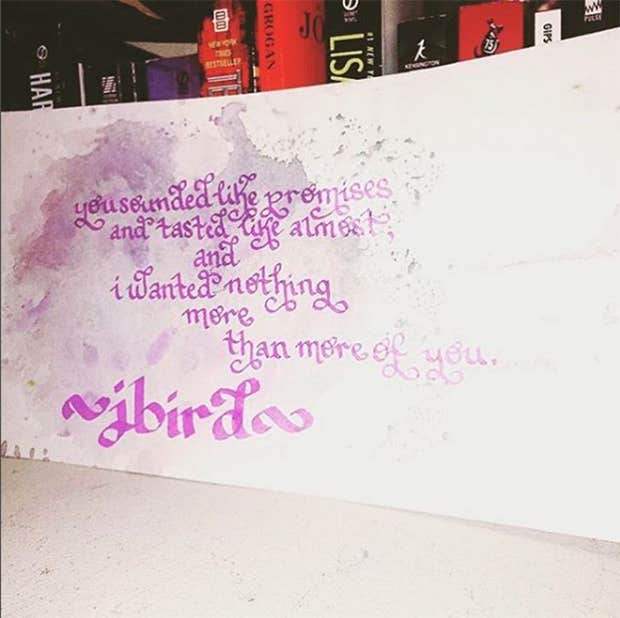 HAR
NEW YORK
TIMES
BESTSELLER
GROGAN
JO
LISA
#1 NEW
KENSINGTON
75
GIPS
PULSE
you sounded like promises
and tasted like almost,
and
i wanted nothing
more
than more of you.
~jbird~